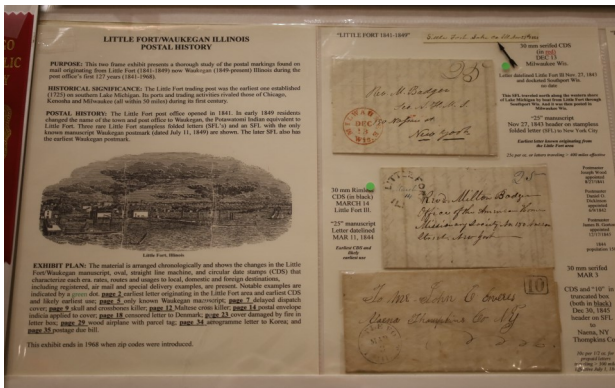 LITTLE FORT/WAUKEGAN ILLINOIS
POSTAL HISTORY
PURPOSE: This two frame exhibit presents a thorough study of the postal markings found on
mail originating from Little Fort (1841-1849) now Waukegan (1849-present) Illinois during the
post office's first 127 years (1841-1968).
HISTORICAL SIGNIFICANCE: The Little Fort trading post was the earliest one established
(1725) on southern Lake Michigan. Its ports and trading activities rivaled those of Chicago,
Kenosha and Milwaukee (all within 50 miles) during its first century.
POSTAL HISTORY: The Little Fort post office opened in 1841. In early 1849 residents
changed the name of the town and post office to Waukegan, the Potawatomi Indian equivalent to
Little Fort. Three rare Little Fort stampless folded letters (SFL's) and an SFL with the only
known manuscript Waukegan postmark (dated July 11, 1849) are shown. The later SFL also has
the earliest Waukegan postmark.
Little Fort, Illinois
EXHIBIT PLAN: The material is arranged chronologically and shows the changes in the Little
Fort/Waukegan manuscript, oval, straight line machine, and circular date stamps (CDS) that
characterize each era. rates, routes and usages to local, domestic and foreign destinations,
including registered, air mail and special delivery examples, are present. Notable examples are
indicated by a green dot. page 2 earliest letter originating in the Little Fort area and earliest CDS
and likely earliest use; page 3 only known Waukegan manuscript; page 7 delayed dispatch
cover; page 9 skull and crossbones killer; page 12 Maltese cross killer; page 14 postal envelope
indicia applied to cover; page 18 censored letter to Denmark; page 23 cover damaged by fire in
letter box; page 29 wood airplane with parcel tag; page 34 aerogramme letter to Korea; and
page 35 postage due bill.
This exhibit ends in 1968 when zip codes were introduced.
"LITTLE FORT 1841-1849"
30 mm serifed CDS
(in red)
DEC 13
Milwaukee Wis.
Letter datelined Little Fort Ill Nov. 25, 1841
and docketed Southport Wis.
"25" manuscript
Nov 27, 1843 header on stampless
folded letter (SFL) to New York City
Earliest letter known originating from
the Little Fort area
New York
25
DEC
13
WIS.
30 mm Rimless
CDS (in black)
MARCH 14
Little Fort Ill.
"25" manuscript
Letter datelined
MAR 11, 1844
Earliest CDS and
likely
earliest use
Revd. Milton Badger
Office of the American Home
Missionary Society
New York
Postmaster
Joseph Wood
appointed
Postmaster
Daniel O.
Dickinson
appointed
Postmaster
appointed
1844
population
10
To Mr. John
Thompkins Co NY
30 mm serifed
MAR 3
CDS and "10" in
truncated box
(both in black)
Dec 30, 1845
header on SFL
to
Varna, NY
Thompkins Co